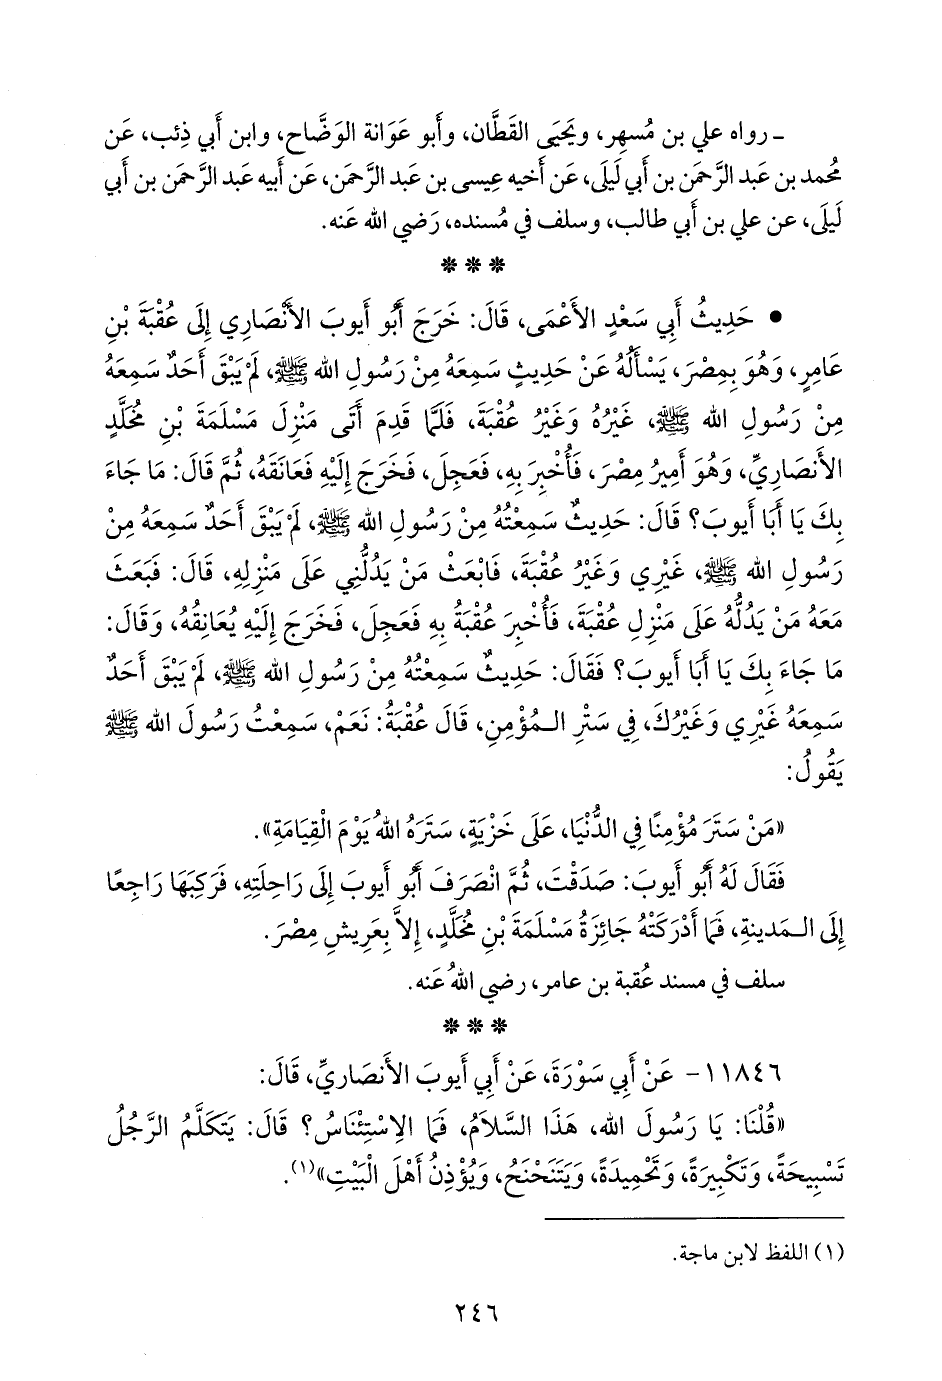 ـ رواه علي بن مُسهِر، ويَحيَى القَطَّان، وأَبو عَوَانة الوَضَّاح، وابن أَبي ذِئب، عَن
مُحمد بن عَبد الرَّحمَن بن أَبي لَيلَى، عَن أَخيه عِيسى بن عَبد الرَّحمَن، عَن أَبيه عَبد الرَّحمَن بن أَبي
لَيلَى، عن علي بن أَبي طالب، وسلف في مُسنده، رَضي الله عَنه.
* * *
• حَدِيثُ أَبِي سَعْدٍ الأَعْمَى، قَالَ: خَرَجَ أَبُو أَيوبَ الأَنْصَارِي إِلَى عُقْبَةَ بْنِ
عَامِرٍ، وَهُوَ بِمِصْرَ، يَسْأَلُهُ عَنْ حَدِيثٍ سَمِعَهُ مِنْ رَسُولِ الله ﷺ، لَمْ يَبْقَ أَحَدٌ سَمِعَهُ
مِنْ رَسُولِ الله ﷺ، غَيْرُهُ وَغَيْرُ عُقْبَةَ، فَلَمَّا قَدِمَ أَتَى مَنْزِلَ مَسْلَمَةَ بْنِ مُخَلَّدٍ
الأَنصَارِيِّ، وَهُوَ أَمِيرُ مِصْرَ، فَأُخْبِرَ بِهِ، فَعَجِلَ، فَخَرَجَ إِلَيْهِ فَعَانَقَهُ، ثُمَّ قَالَ: مَا جَاءَ
بِكَ يَا أَبَا أَيوبَ؟ قَالَ: حَدِيثٌ سَمِعْتُهُ مِنْ رَسُولِ الله ﷺ، لَمْ يَبْقَ أَحَدٌ سَمِعَهُ مِنْ
رَسُولِ الله ﷺ، غَيْرِي وَغَيْرُ عُقْبَةَ، فَابْعَثْ مَنْ يَدُلُّنِي عَلَى مَنْزِلِهِ، قَالَ: فَبَعَثَ
مَعَهُ مَنْ يَدُلُّهُ عَلَى مَنْزِلِ عُقْبَةَ، فَأُخْبِرَ عُقْبَةُ بِهِ فَعَجِلَ، فَخَرَجَ إِلَيْهِ يُعَانِقُهُ، وَقَالَ:
مَا جَاءَ بِكَ يَا أَبَا أَيوبَ؟ فَقَالَ: حَدِيثٌ سَمِعْتُهُ مِنْ رَسُولِ الله ﷺ، لَمْ يَبْقَ أَحَدٌ
سَمِعَهُ غَيْرِي وَغَيْرُكَ، فِي سَتْرِ الـمُؤْمِنِ، قَالَ عُقْبَةُ: نَعَمْ، سَمِعْتُ رَسُولَ الله ﷺ
يَقُولُ:
«مَنْ سَتَرَ مُؤْمِنًا فِي الدُّنْيَا، عَلَى خَزْيَةٍ، سَتَرَهُ اللهُ يَوْمَ الْقِيَامَةِ».
فَقَالَ لَهُ أَبُو أَيوبَ: صَدَقْتَ، ثُمَّ انْصَرَفَ أَبُو أَيوبَ إِلَى رَاحِلَتِهِ، فَرَكِبَهَا رَاجِعًا
إِلَى الـمَدينةِ، فَمَا أَدْرَكَتْهُ جَائِزَةُ مَسْلَمَةَ بْنِ مُخَلَّدٍ، إِلاَّ بِعَرِيشِ مِصْرَ.
سلف في مسند عُقبة بن عامر، رضي اللهُ عَنه.
* * *
١١٨٤٦- عَنْ أَبِي سَوْرَةَ، عَنْ أَبِي أَيوبَ الأَنصَارِيِّ، قَالَ:
«قُلْنَا: يَا رَسُولَ الله، هَذَا السَّلاَمُ، فَمَا الاِسْتِئْنَاسُ؟ قَالَ: يَتَكَلَّمُ الرَّجُلُ
تَسْبِيحَةً، وَتَكْبِيرَةً، وَتَحْمِيدَةً، وَيَتَنَحْنَحُ، وَيُؤْذِنُ أَهْلَ الْبَيْتِ»(١).
(١) اللفظ لابن ماجة.
٢٤٦